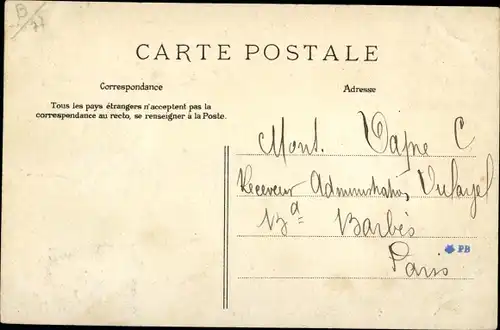 B
77
CARTE POSTALE
Correspondance
Adresse
Tous les pays étrangers n'acceptent pas la
correspondance au recto, se renseigner à la Poste.
C
Receveur Administration
Bd Barbès
Paris
PB